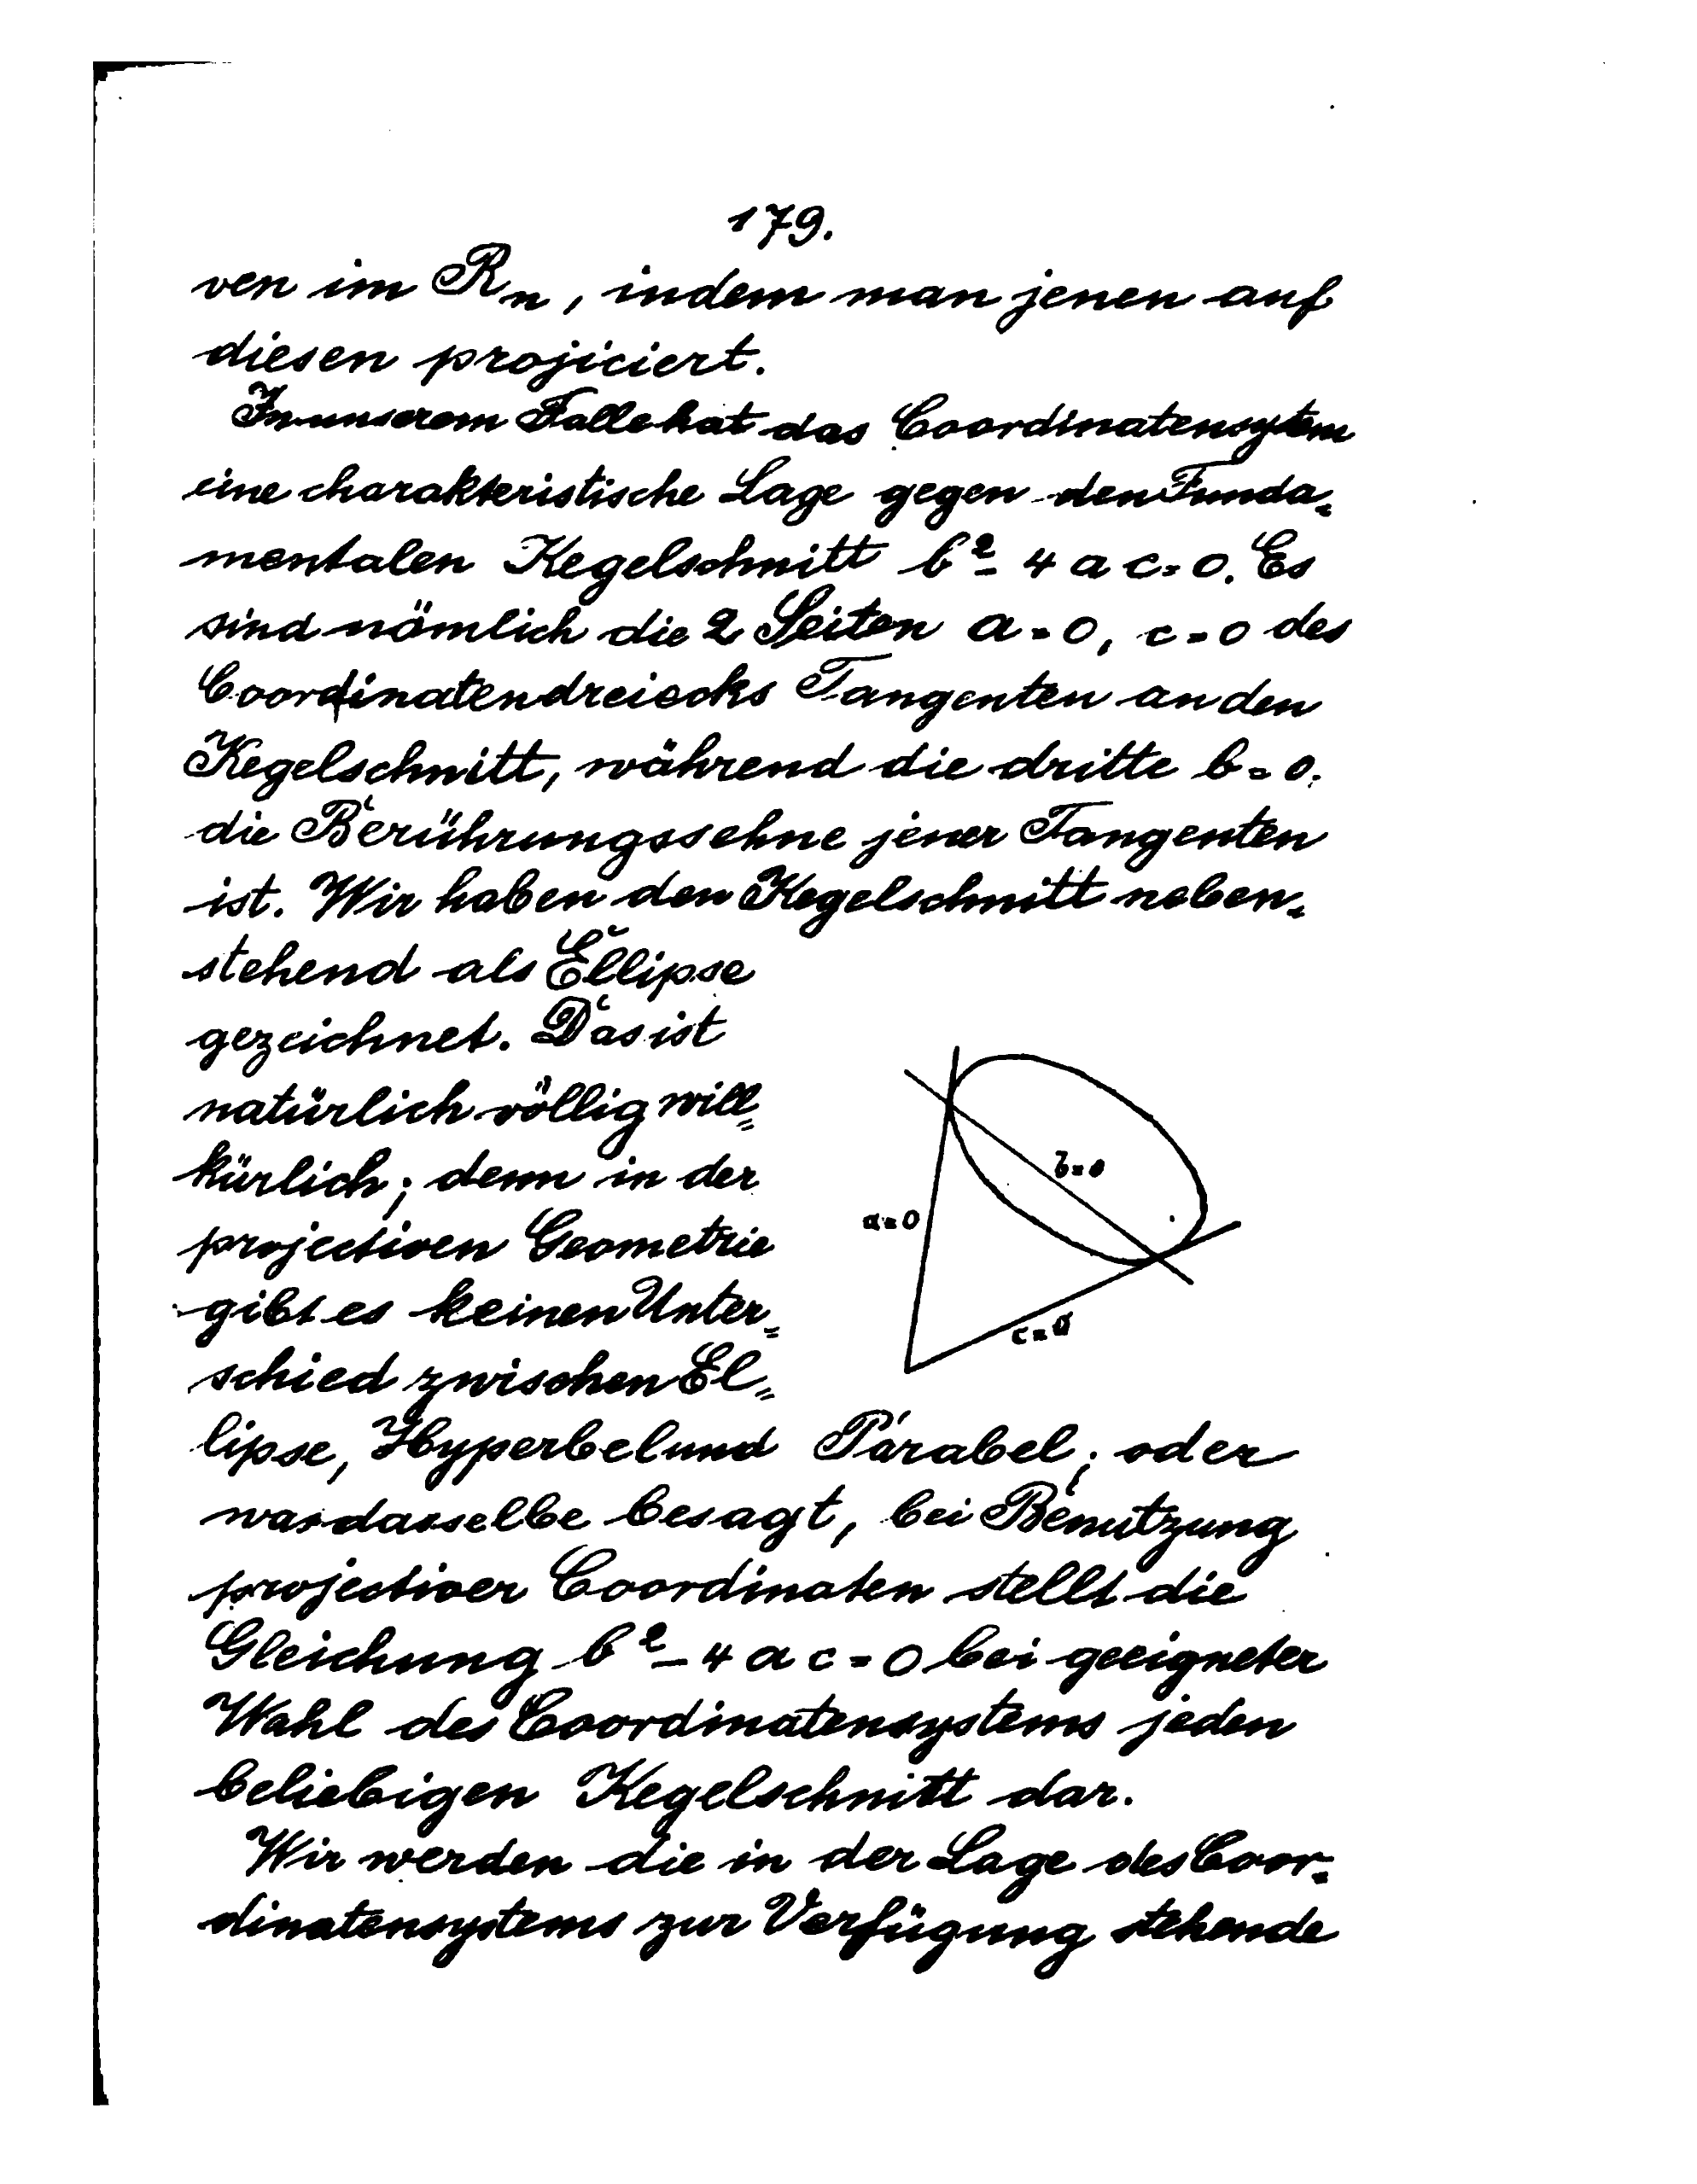 179.
ven im Rₙ, indem man jenen auf
diesen projiciert.
In unserem Falle hat das Coordinatensytem
eine charakteristische Lage gegen den Funda=
mentalen Kegelschnitt b² - 4 a c = 0. Es
sind nämlich die 2 Seiten a = 0, c = 0 des
Coordinatendreiecks Tangenten an den
Kegelschnitt, während die dritte b = 0.
die Berührungssehne jener Tangenten
ist. Wir haben den Kegelschnitt neben=
stehend als Ellipse
gezeichnet. Das ist
natürlich völlig will=
kürlich; denn in der
projectiven Geometrie
gibt es keinen Unter=
schied zwischen El=
lipse, Hyperbel und Parabel; oder
was dasselbe besagt, bei Benutzung
projectiver Coordinaten stellt die
Gleichung b² - 4 a c = 0 bei geeigneter
Wahl des Coordinatensystems jeden
beliebigen Kegelschnitt dar.
Wir werden die in der Lage des Coor=
dinatensystems zur Verfügung stehende
b = 0
a = 0
c = 0